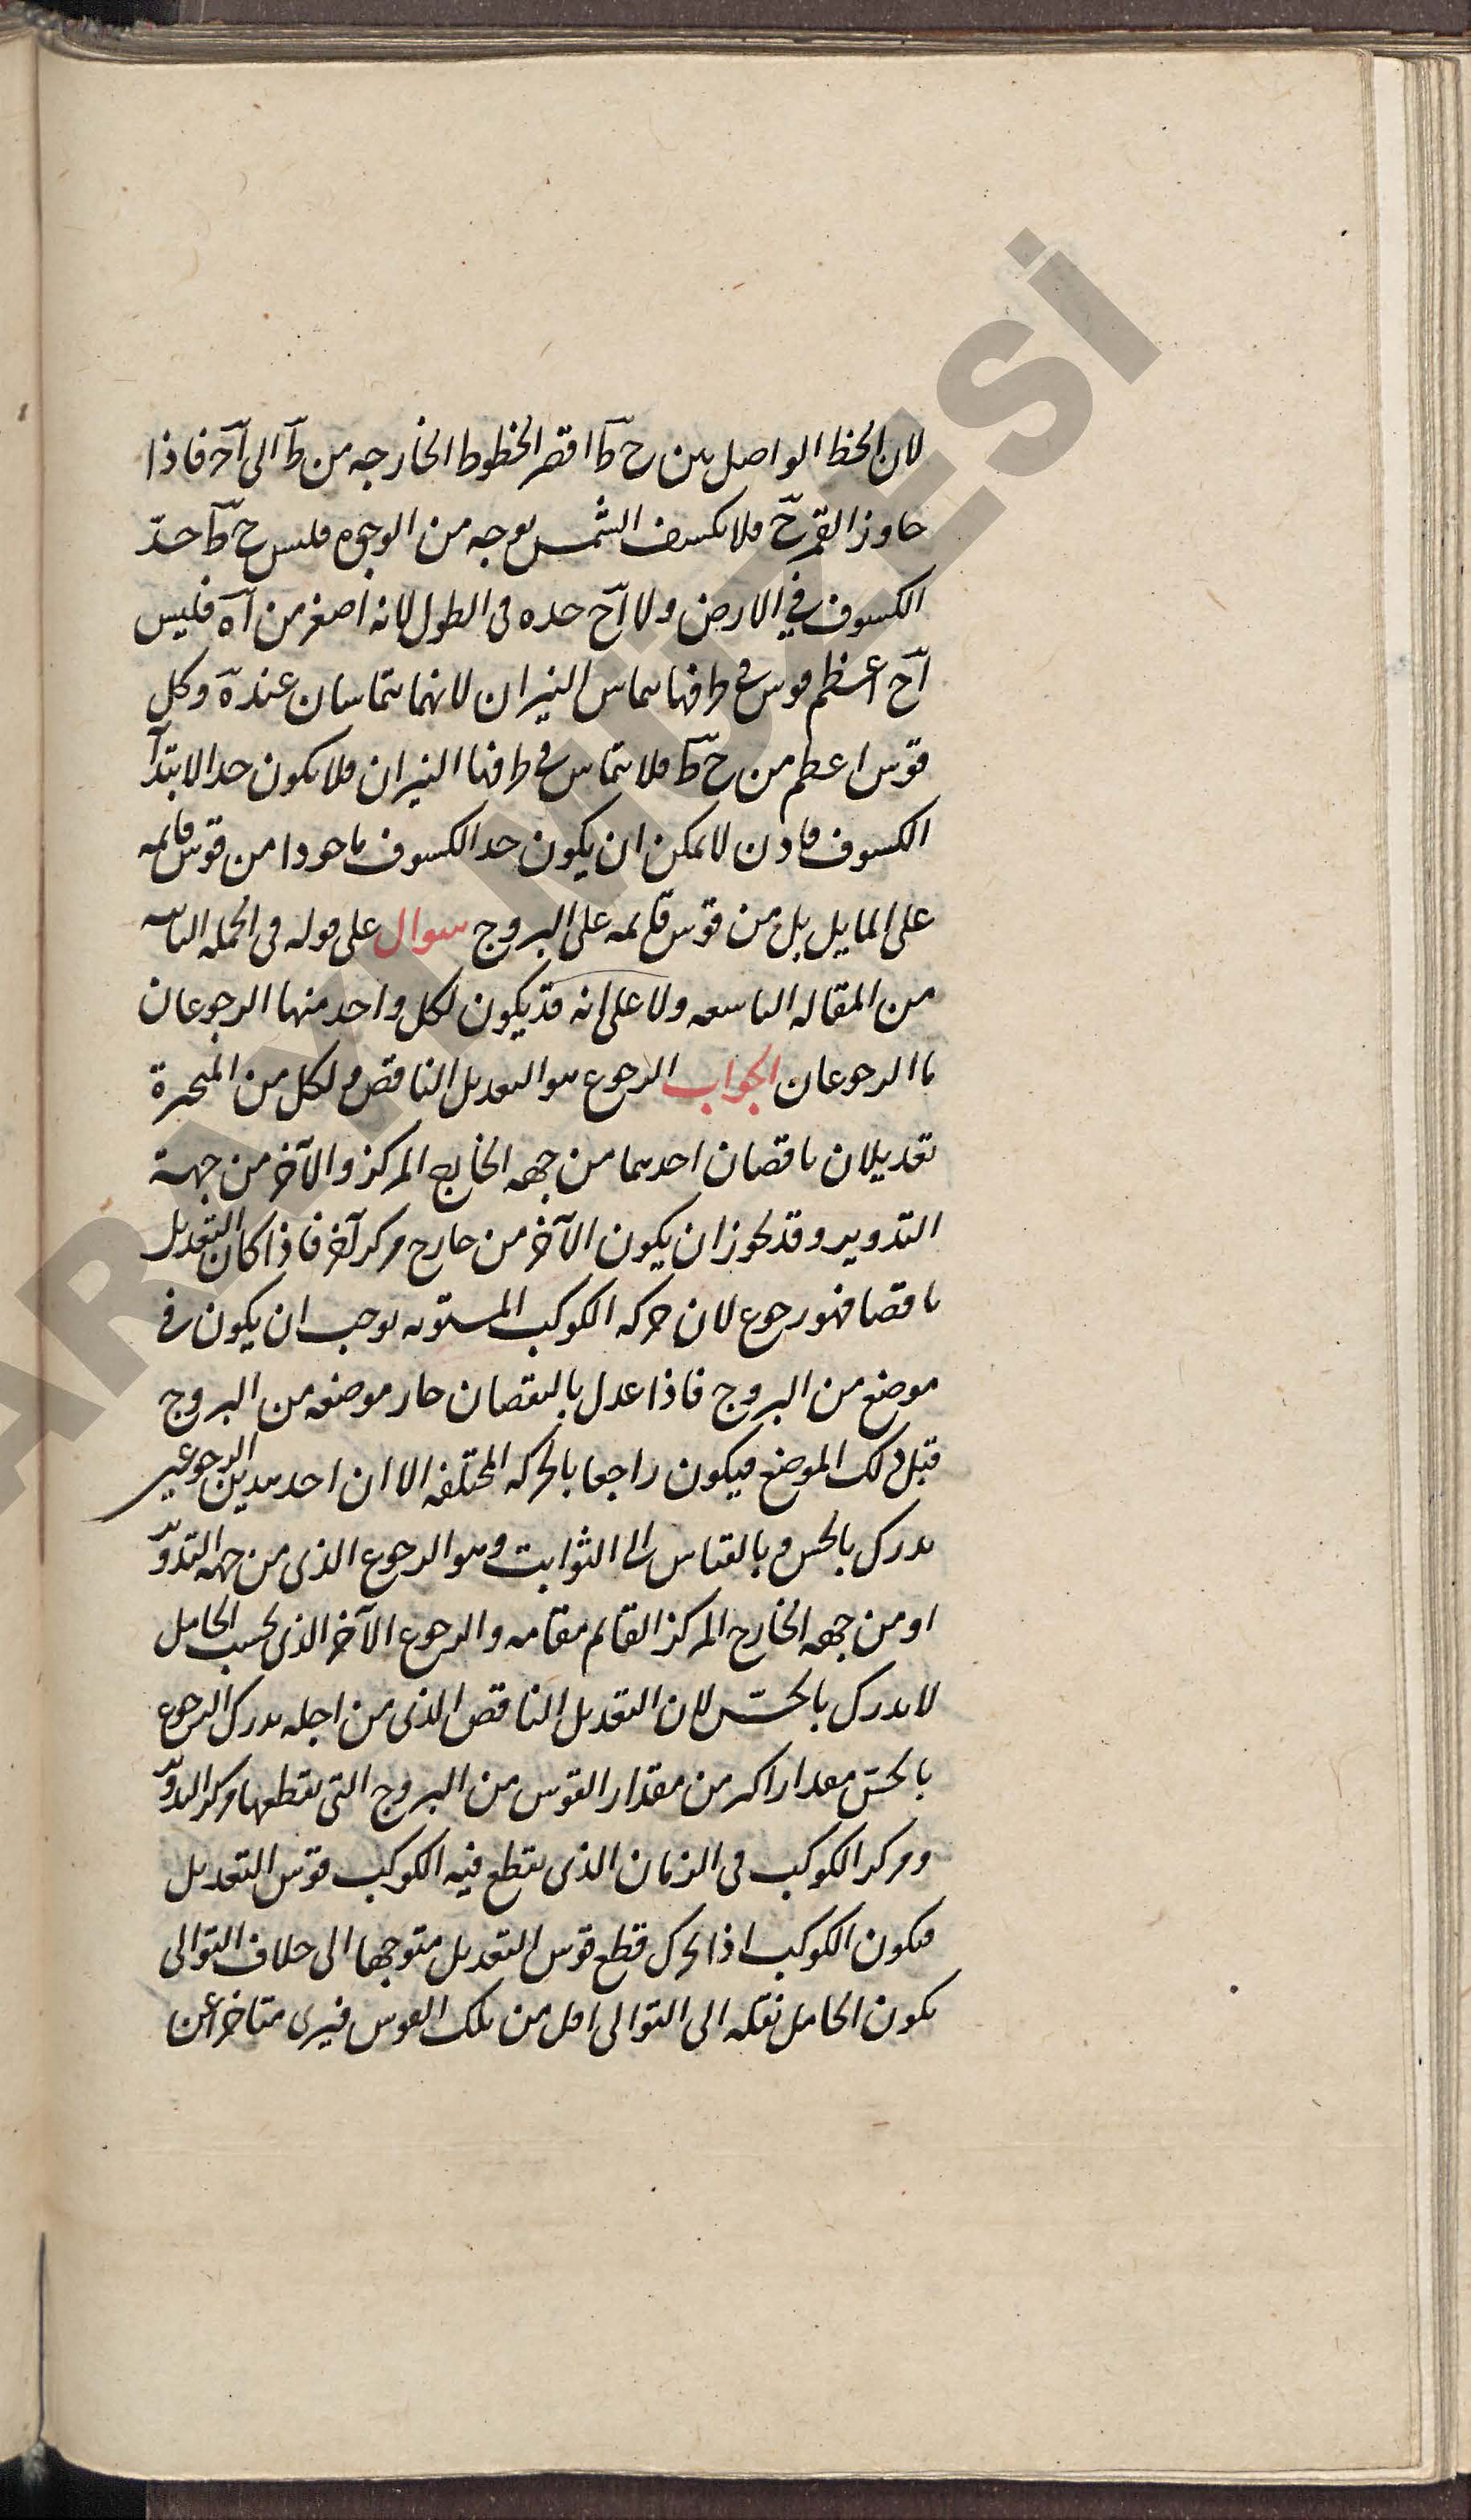 لان الخط الواصل بين ح ط اقصر الخطوط الخارجه من ط الى آح فاذا
جاوز القمر ح فلا يكسف الشمس بوجه من الوجوه فليس ح ط حدّ
الكسوف في الارض ولا آح حده فى الطول لانه اصغر من آه فليس
آح اعظم قوس فى طرفها يتماس النيران لانهما يتماسان عند ه وكل
قوس اعظم من ح ط فلا يتماس فى طرفها النيران فلا يكون حدا لابتدآ
الكسوف فاذن لا يمكن ان يكون حد الكسوف ماخوذا من قوس قايمه
على المايل بل من قوس قايمه على البروج سوال على قوله فى الجمله الثانيه
من المقاله التاسعه ولا على انه قد يكون لكل واحد منها الرجوعان
ما الرجوعان الجواب الرجوع هو التعديل الناقص ولكل من المتحيرة
تعديلان ناقصان احدهما من جهه الخارج المركز والآخر من جهة
التدوير وقد يجوز ان يكون الآخر من خارج مركز آخر فاذا كان التعديل
ناقصا فهو رجوع لان حركه الكوكب المستويه توجب ان يكون فى
موضع من البروج فاذا عدل بالنقصان صار موضعه من البروج
قبل ذلك الموضع فيكون راجعا بالحركه المختلفه الا ان احد هذين الرجوعين
يدرك بالحس وبالقياس الى الثوابت وهو الرجوع الذى من جهه التدوير
او من جهه الخارج المركز القايم مقامه والرجوع الآخر الذى بحسب الحامل
لا يدرك بالحسّ لان التعديل الناقص الذى من اجله يدرك الرجوع
بالحسّ مقدارا اكبر من مقدار القوس من البروج التى يقطعها مركز التدوير
ومركز الكوكب فى الزمان الذى يقطع فيه الكوكب قوس التعديل
فيكون الكوكب اذا تحرك قطع قوس التعديل متوجها الى خلاف التوالى
يكون الحامل نقله الى التوالى اقل من تلك القوس فيرى متاخرا عن
ARAYI MÜZESİ